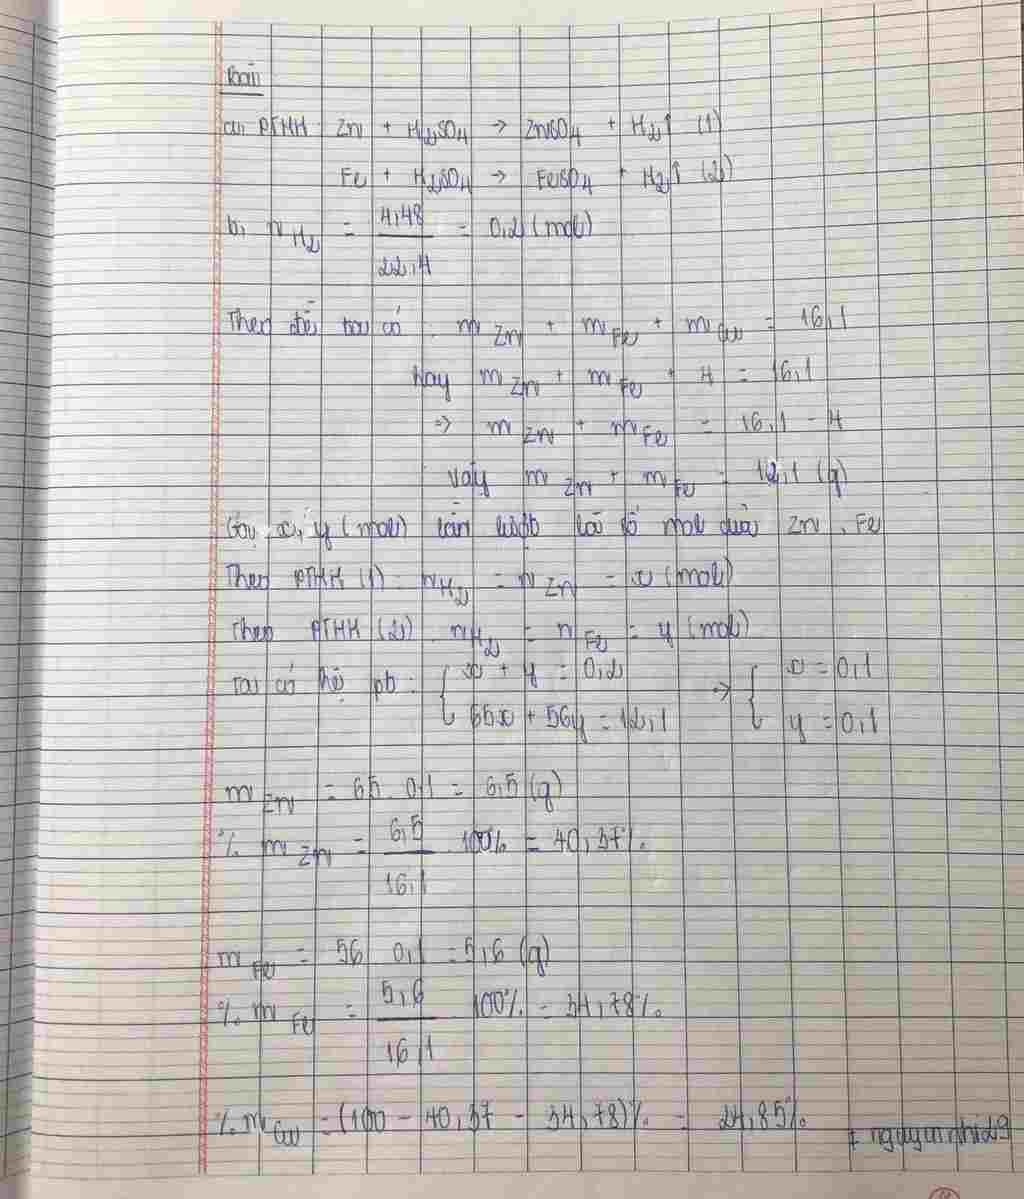 Bài
a, PTHH: Zn + H₂SO₄ → ZnSO₄ + H₂↑ (1)
Fe + H₂SO₄ → FeSO₄ + H₂↑ (2)
b, n H₂ = 4,48 / 22,4 = 0,2 (mol)
Theo đề, ta có: m Zn + m Fe + m Cu = 16,1
Hay m Zn + m Fe + 4 = 16,1
=> m Zn + m Fe = 16,1 - 4
Vậy m Zn + m Fe = 12,1 (g)
Gọi x, y (mol) lần lượt là số mol của Zn, Fe
Theo PTHH (1): n H₂ = n Zn = x (mol)
Theo PTHH (2): n H₂ = n Fe = y (mol)
Ta có hệ pt: { x + y = 0,2 → { x = 0,1
65x + 56y = 12,1 y = 0,1
m Zn = 65 . 0,1 = 6,5 (g)
% m Zn = 6,5 / 16,1 . 100% = 40,37%
m Fe = 56 . 0,1 = 5,6 (g)
% m Fe = 5,6 / 16,1 . 100% = 34,78%
% m Cu = (100 - 40,37 - 34,78)% = 24,85%
# nguyennhi29